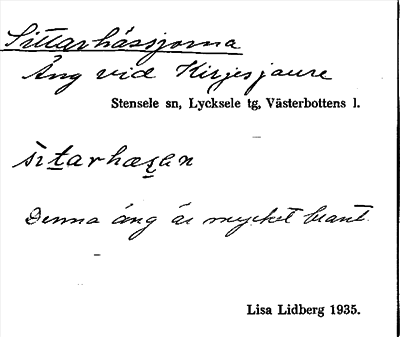 Sittarhässjorna
Äng vid Kirjesjaure
Stensele sn, Lycksele tg, Västerbottens l.
sìtarhæsαn
Denna äng är mycket brant.
Lisa Lidberg 1935.